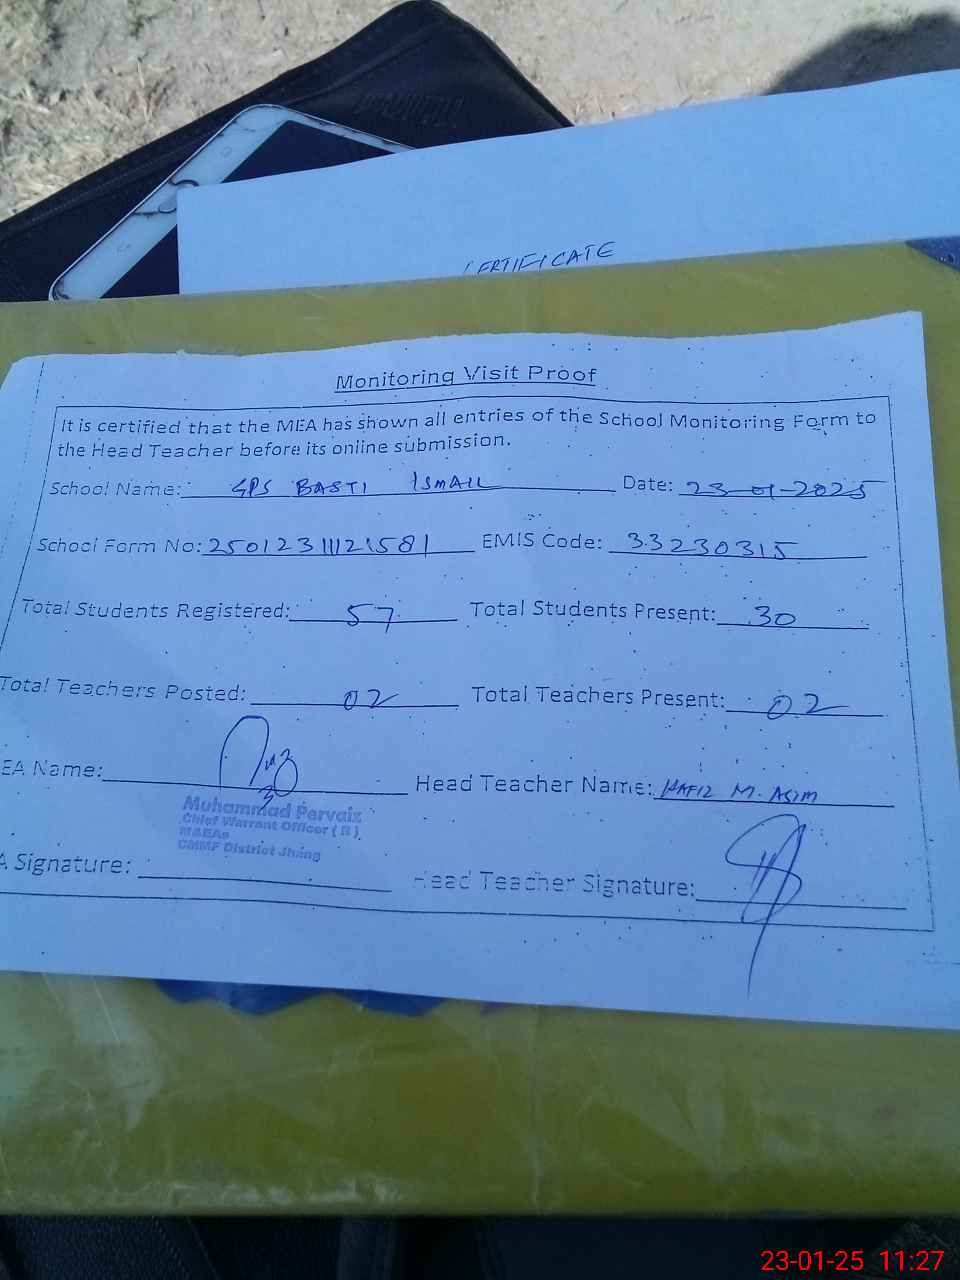 CERTIFICATE
Monitoring Visit Proof
It is certified that the MEA has shown all entries of the School Monitoring Form to
the Head Teacher before its online submission.
School Name: GPS BASTI ISMAIL Date: 23-01-2025
School Form No: 2501231121581 EMIS Code: 33230315
Total Students Registered: 57 Total Students Present: 30
Total Teachers Posted: 02 Total Teachers Present: 02
EA Name: Head Teacher Name: HAFIZ M. ASIM
Muhammad Pervaiz
Chief Warrant Officer ( R )
MAEAs
CMMF District Jhang
A Signature: Head Teacher Signature:
23-01-25 11:27